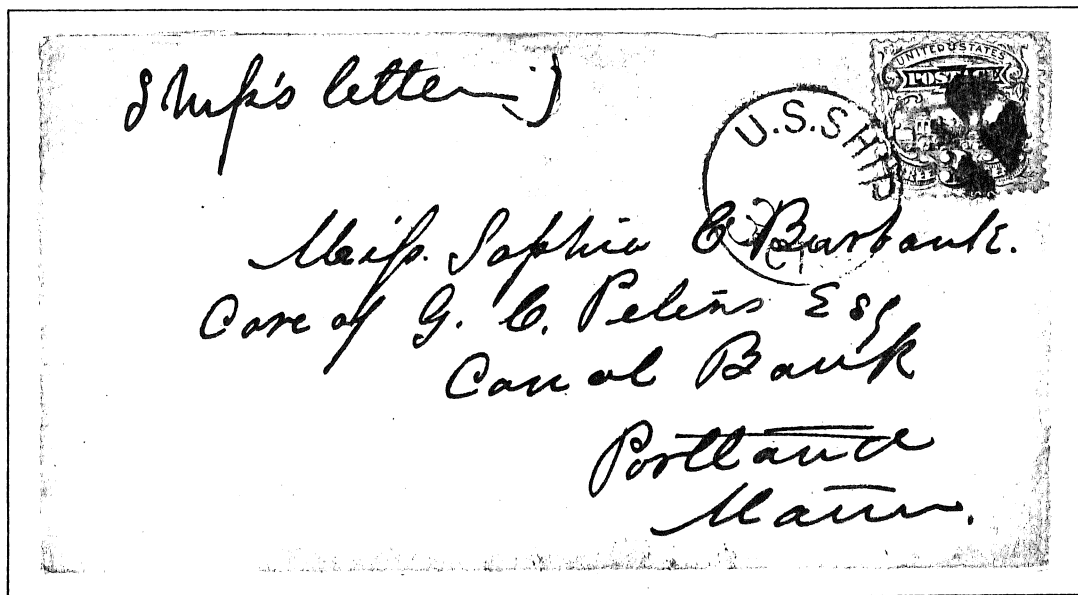 Ship's letter
UNITED STATES
POSTAGE
U.S. SHIP
Miss. Sophia C Burbank.
Care of G. C. Peters Esq
Canal Bank
Portland
Maine.